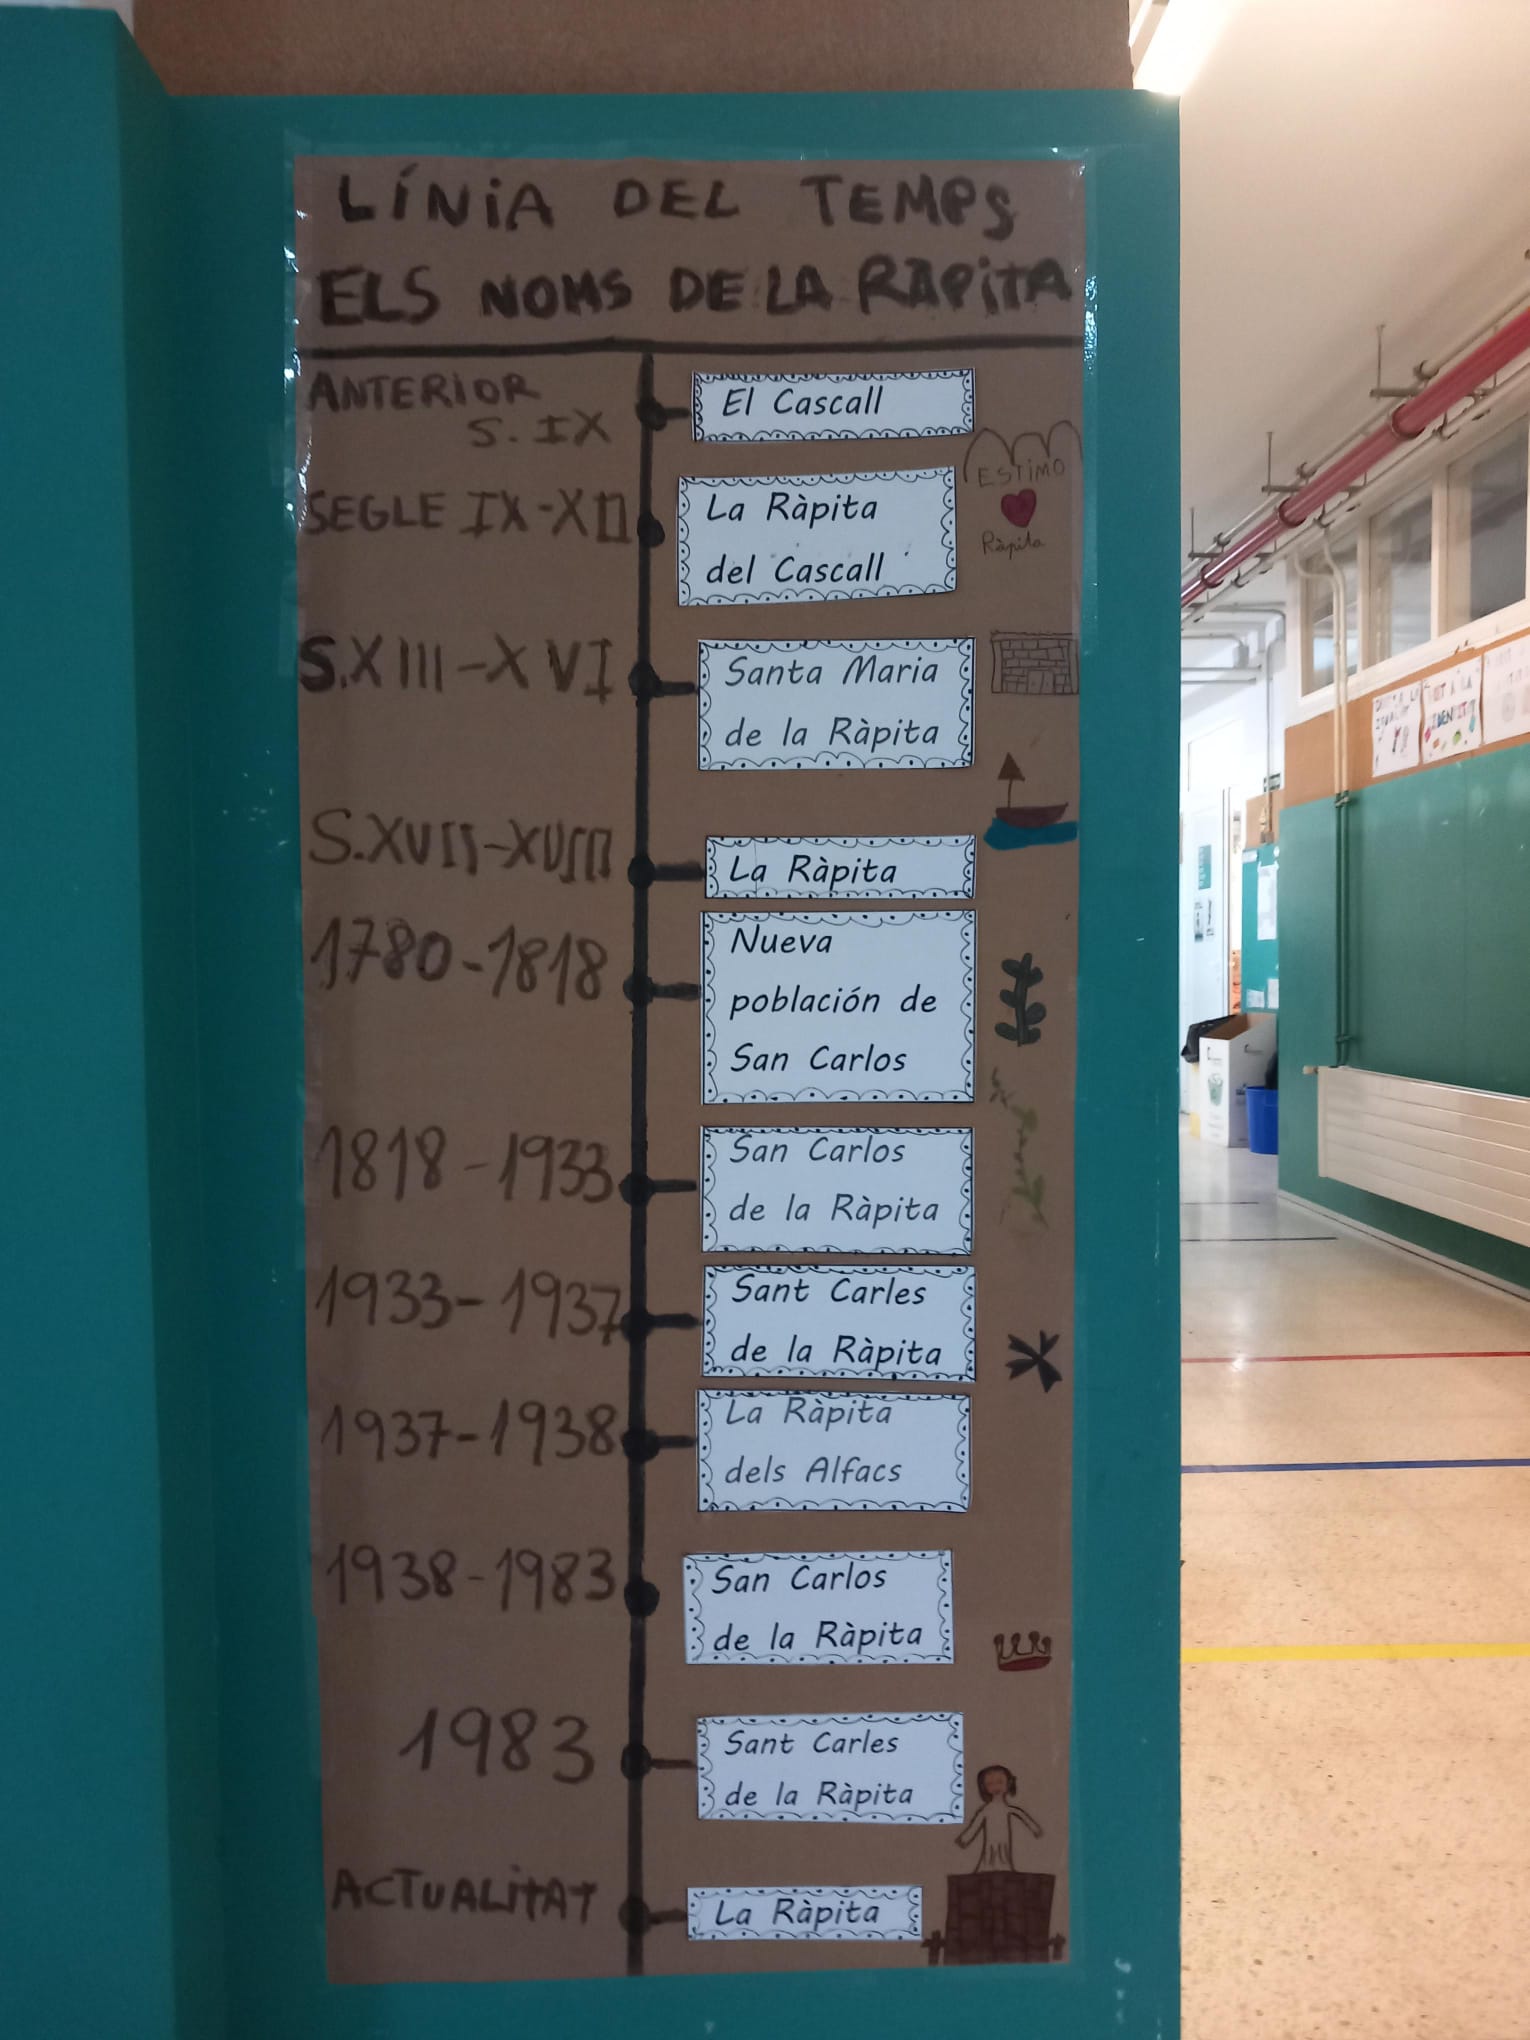 LÍNiA DEL TEMPS
ELS NOMS DE LA RÀPiTA
ANTERIOR
S. IX
El Cascall
ESTIMO
Ràpita
SEGLE IX-XII
La Ràpita
del Cascall
S.XIII-XVI
Santa Maria
de la Ràpita
S.XVII-XVIII
La Ràpita
1780-1818
Nueva
población de
San Carlos
1818-1933
San Carlos
de la Ràpita
1933-1937
Sant Carles
de la Ràpita
1937-1938
La Ràpita
dels Alfacs
1938-1983
San Carlos
de la Ràpita
1983
Sant Carles
de la Ràpita
ACTUALiTAT
La Ràpita